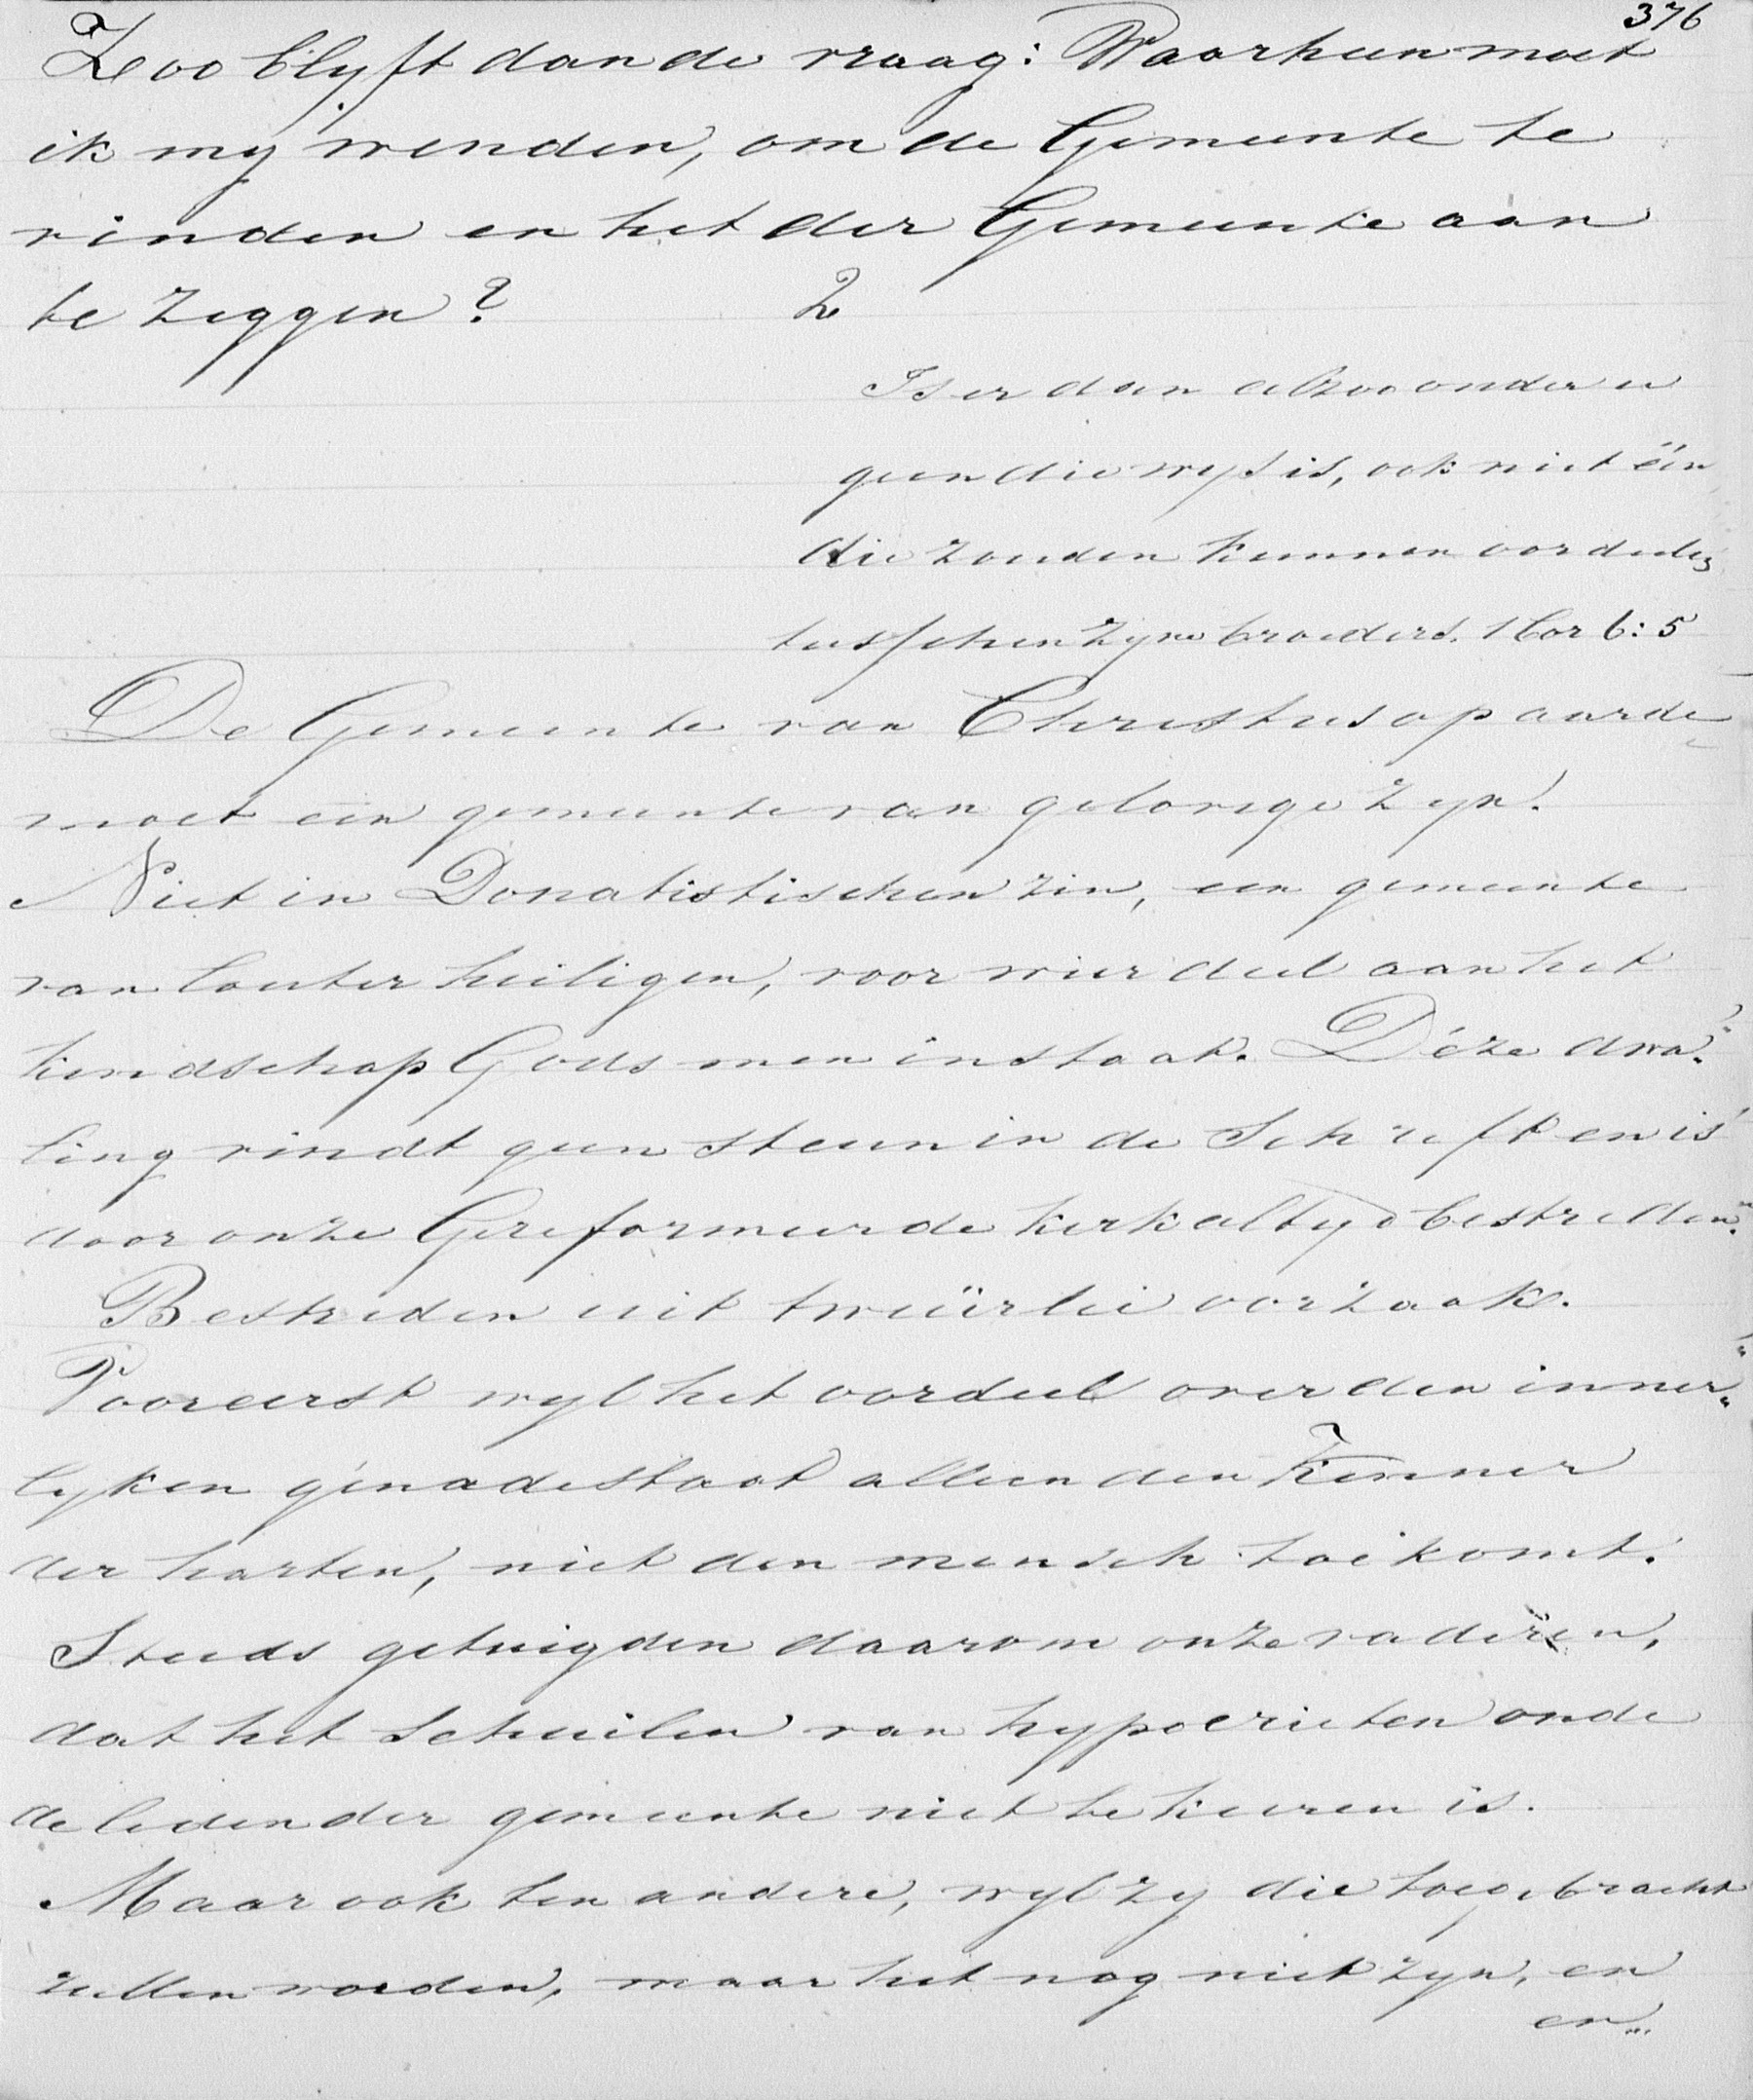 376
Zoo blyft dan de vraag: Waarheen moet
ik my wenden, om de Gemeente te
vinden en het der Gemeente aan
te zeggen?
2
Is er dan alzoo onder u
geen die wys is, ook niet één
die zouden kunnen oordeelen
tusschen zyne broeders. 1 Cor 6:5
De Gemeente van Christus op aarde
moet een gemeente van gelovige zyn.
Niet in Donatistischen zin, een gemeente
van louter heiligen, voor wier deel aan het
kindschap Gods men instaat. Déze dwa„
ling vindt geen steun in de Schrift en is
door onze Gereformeerde kerk altyd bestreden.
Bestreden uit tweeërlei oorzaak.
Vooreerst wyl het oordeel over den inner„
lyken genadestaat alleen den Kenner
der harten, niet den mensch toekomt.
Steeds getuigden daarom onze vaderen,
dat het schuilen van hypocrieten onde
de leden der gemeente niet te keeren is.
Maar ook ten andere, wyl zy die toegebracht
zullen worden, maar het nog niet zyn, en
en